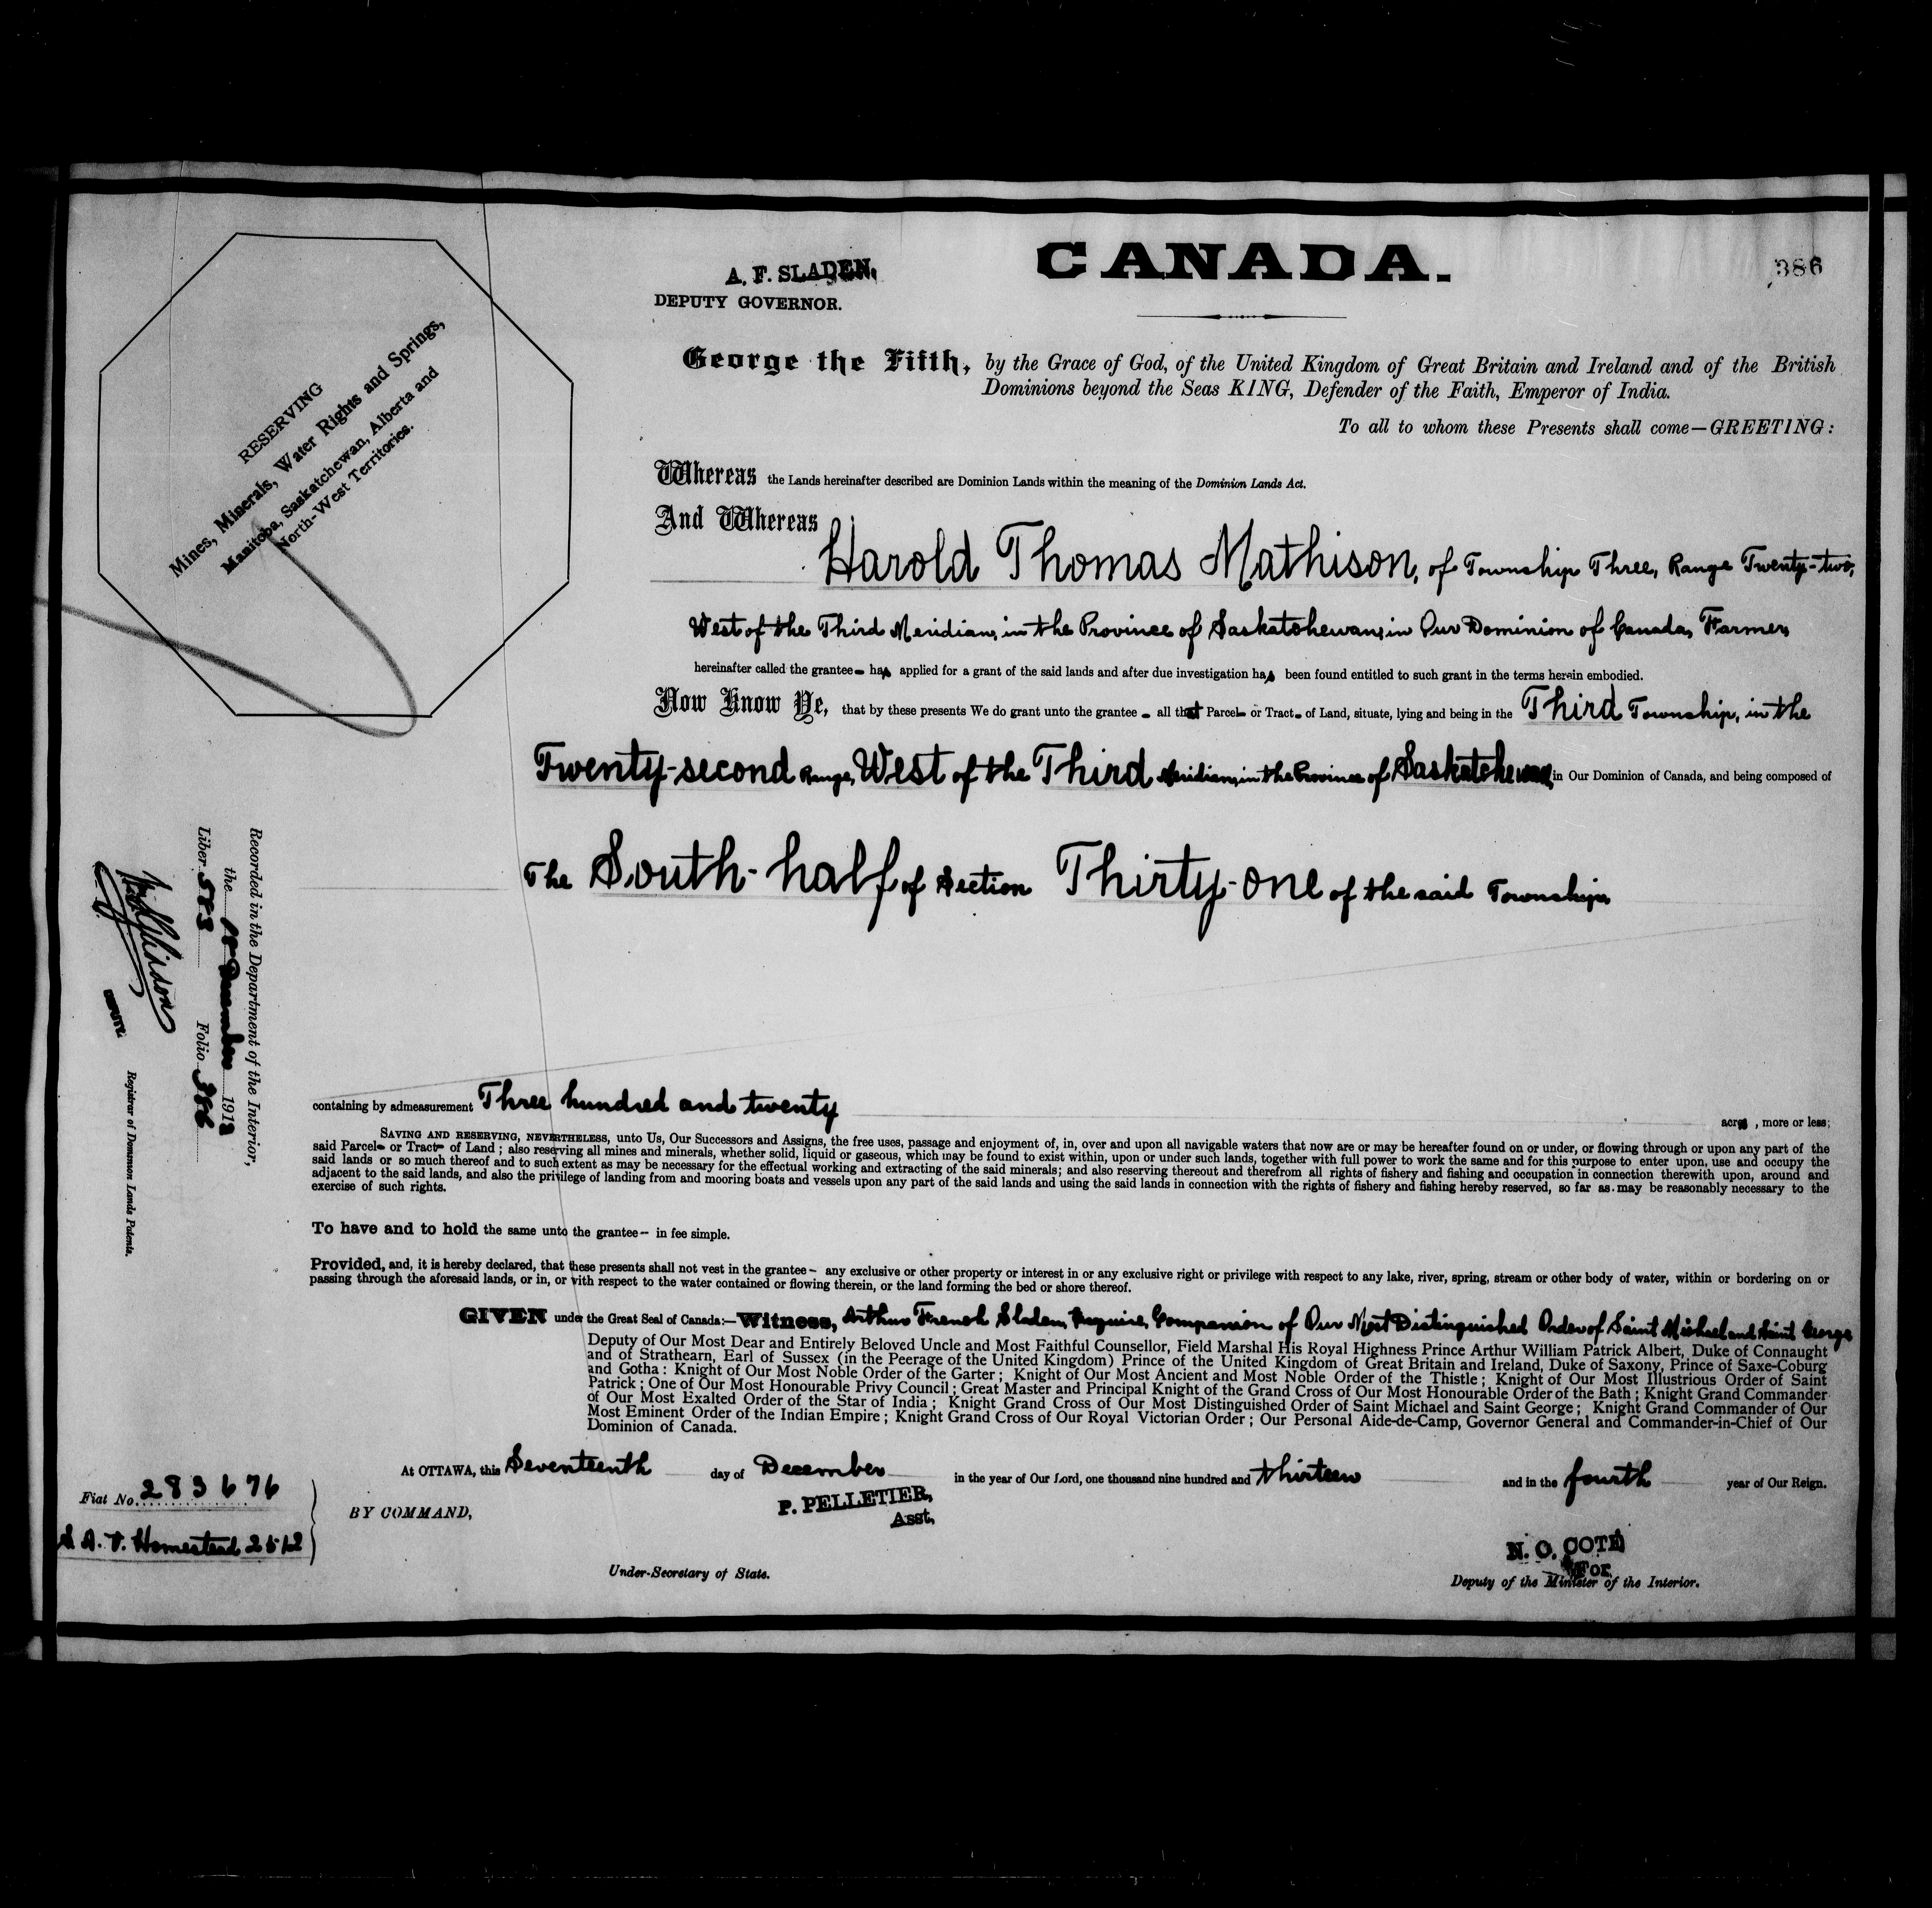 CANADA.
386
A. F. SLADEN,
DEPUTY GOVERNOR.
RESERVING
Mines, Minerals, Water Rights and Springs,
Manitoba, Saskatchewan, Alberta and
North-West Territories.
George the Fifth, by the Grace of God, of the United Kingdom of Great Britain and Ireland and of the British
Dominions beyond the Seas KING, Defender of the Faith, Emperor of India.
To all to whom these Presents shall come—GREETING:
Whereas the Lands hereinafter described are Dominion Lands within the meaning of the Dominion Lands Act.
And Whereas
Harold Thomas Mathison, of Township Three, Range Twenty-two,
West of the Third Meridian, in the Province of Saskatchewan, in Our Dominion of Canada, Farmer,
hereinafter called the grantee - has applied for a grant of the said lands and after due investigation has been found entitled to such grant in the terms herein embodied.
Now Know Ye, that by these presents We do grant unto the grantee - all that Parcel- or Tract- of Land, situate, lying and being in the Third Township, in the
Twenty-second Range, West of the Third Meridian, in the Province of Saskatchewan, in Our Dominion of Canada, and being composed of
The South-half of Section Thirty-one of the said Township,
containing by admeasurement Three hundred and twenty acres, more or less;
SAVING AND RESERVING, NEVERTHELESS, unto Us, Our Successors and Assigns, the free uses, passage and enjoyment of, in, over and upon all navigable waters that now are or may be hereafter found on or under, or flowing through or upon any part of the
said Parcel- or Tract- of Land; also reserving all mines and minerals, whether solid, liquid or gaseous, which may be found to exist within, upon or under such lands, together with full power to work the same and for this purpose to enter upon, use and occupy the
said lands or so much thereof and to such extent as may be necessary for the effectual working and extracting of the said minerals; and also reserving thereout and therefrom all rights of fishery and fishing and occupation in connection therewith upon, around and
adjacent to the said lands, and also the privilege of landing from and mooring boats and vessels upon any part of the said lands and using the said lands in connection with the rights of fishery and fishing hereby reserved, so far as may be reasonably necessary to the
exercise of such rights.
To have and to hold the same unto the grantee - in fee simple.
Provided, and, it is hereby declared, that these presents shall not vest in the grantee - any exclusive or other property or interest in or any exclusive right or privilege with respect to any lake, river, spring, stream or other body of water, within or bordering on or
passing through the aforesaid lands, or in, or with respect to the water contained or flowing therein, or the land forming the bed or shore thereof.
GIVEN under the Great Seal of Canada:—Witness, Arthur French Sladen, Esquire, Companion of Our Most Distinguished Order of Saint Michael and Saint George
Deputy of Our Most Dear and Entirely Beloved Uncle and Most Faithful Counsellor, Field Marshal His Royal Highness Prince Arthur William Patrick Albert, Duke of Connaught
and of Strathearn, Earl of Sussex (in the Peerage of the United Kingdom) Prince of the United Kingdom of Great Britain and Ireland, Duke of Saxony, Prince of Saxe-Coburg
and Gotha: Knight of Our Most Noble Order of the Garter; Knight of Our Most Ancient and Most Noble Order of the Thistle; Knight of Our Most Illustrious Order of Saint
Patrick; One of Our Most Honourable Privy Council; Great Master and Principal Knight of the Grand Cross of Our Most Honourable Order of the Bath; Knight Grand Commander
of Our Most Exalted Order of the Star of India; Knight Grand Cross of Our Most Distinguished Order of Saint Michael and Saint George; Knight Grand Commander of Our
Most Eminent Order of the Indian Empire; Knight Grand Cross of Our Royal Victorian Order; Our Personal Aide-de-Camp, Governor General and Commander-in-Chief of Our
Dominion of Canada.
At OTTAWA, this Seventeenth day of December in the year of Our Lord, one thousand nine hundred and thirteen and in the fourth year of Our Reign.
BY COMMAND,
P. PELLETIER,
Asst.
Under-Secretary of State.
N. O. COTÉ
For
Deputy of the Minister of the Interior.
Fiat No. 283676
S. A. V. Homestead 2512
Recorded in the Department of the Interior,
the 18 December 1913
Liber 583 Folio 386
DEPUTY.
Registrar of Dominion Lands Patents.